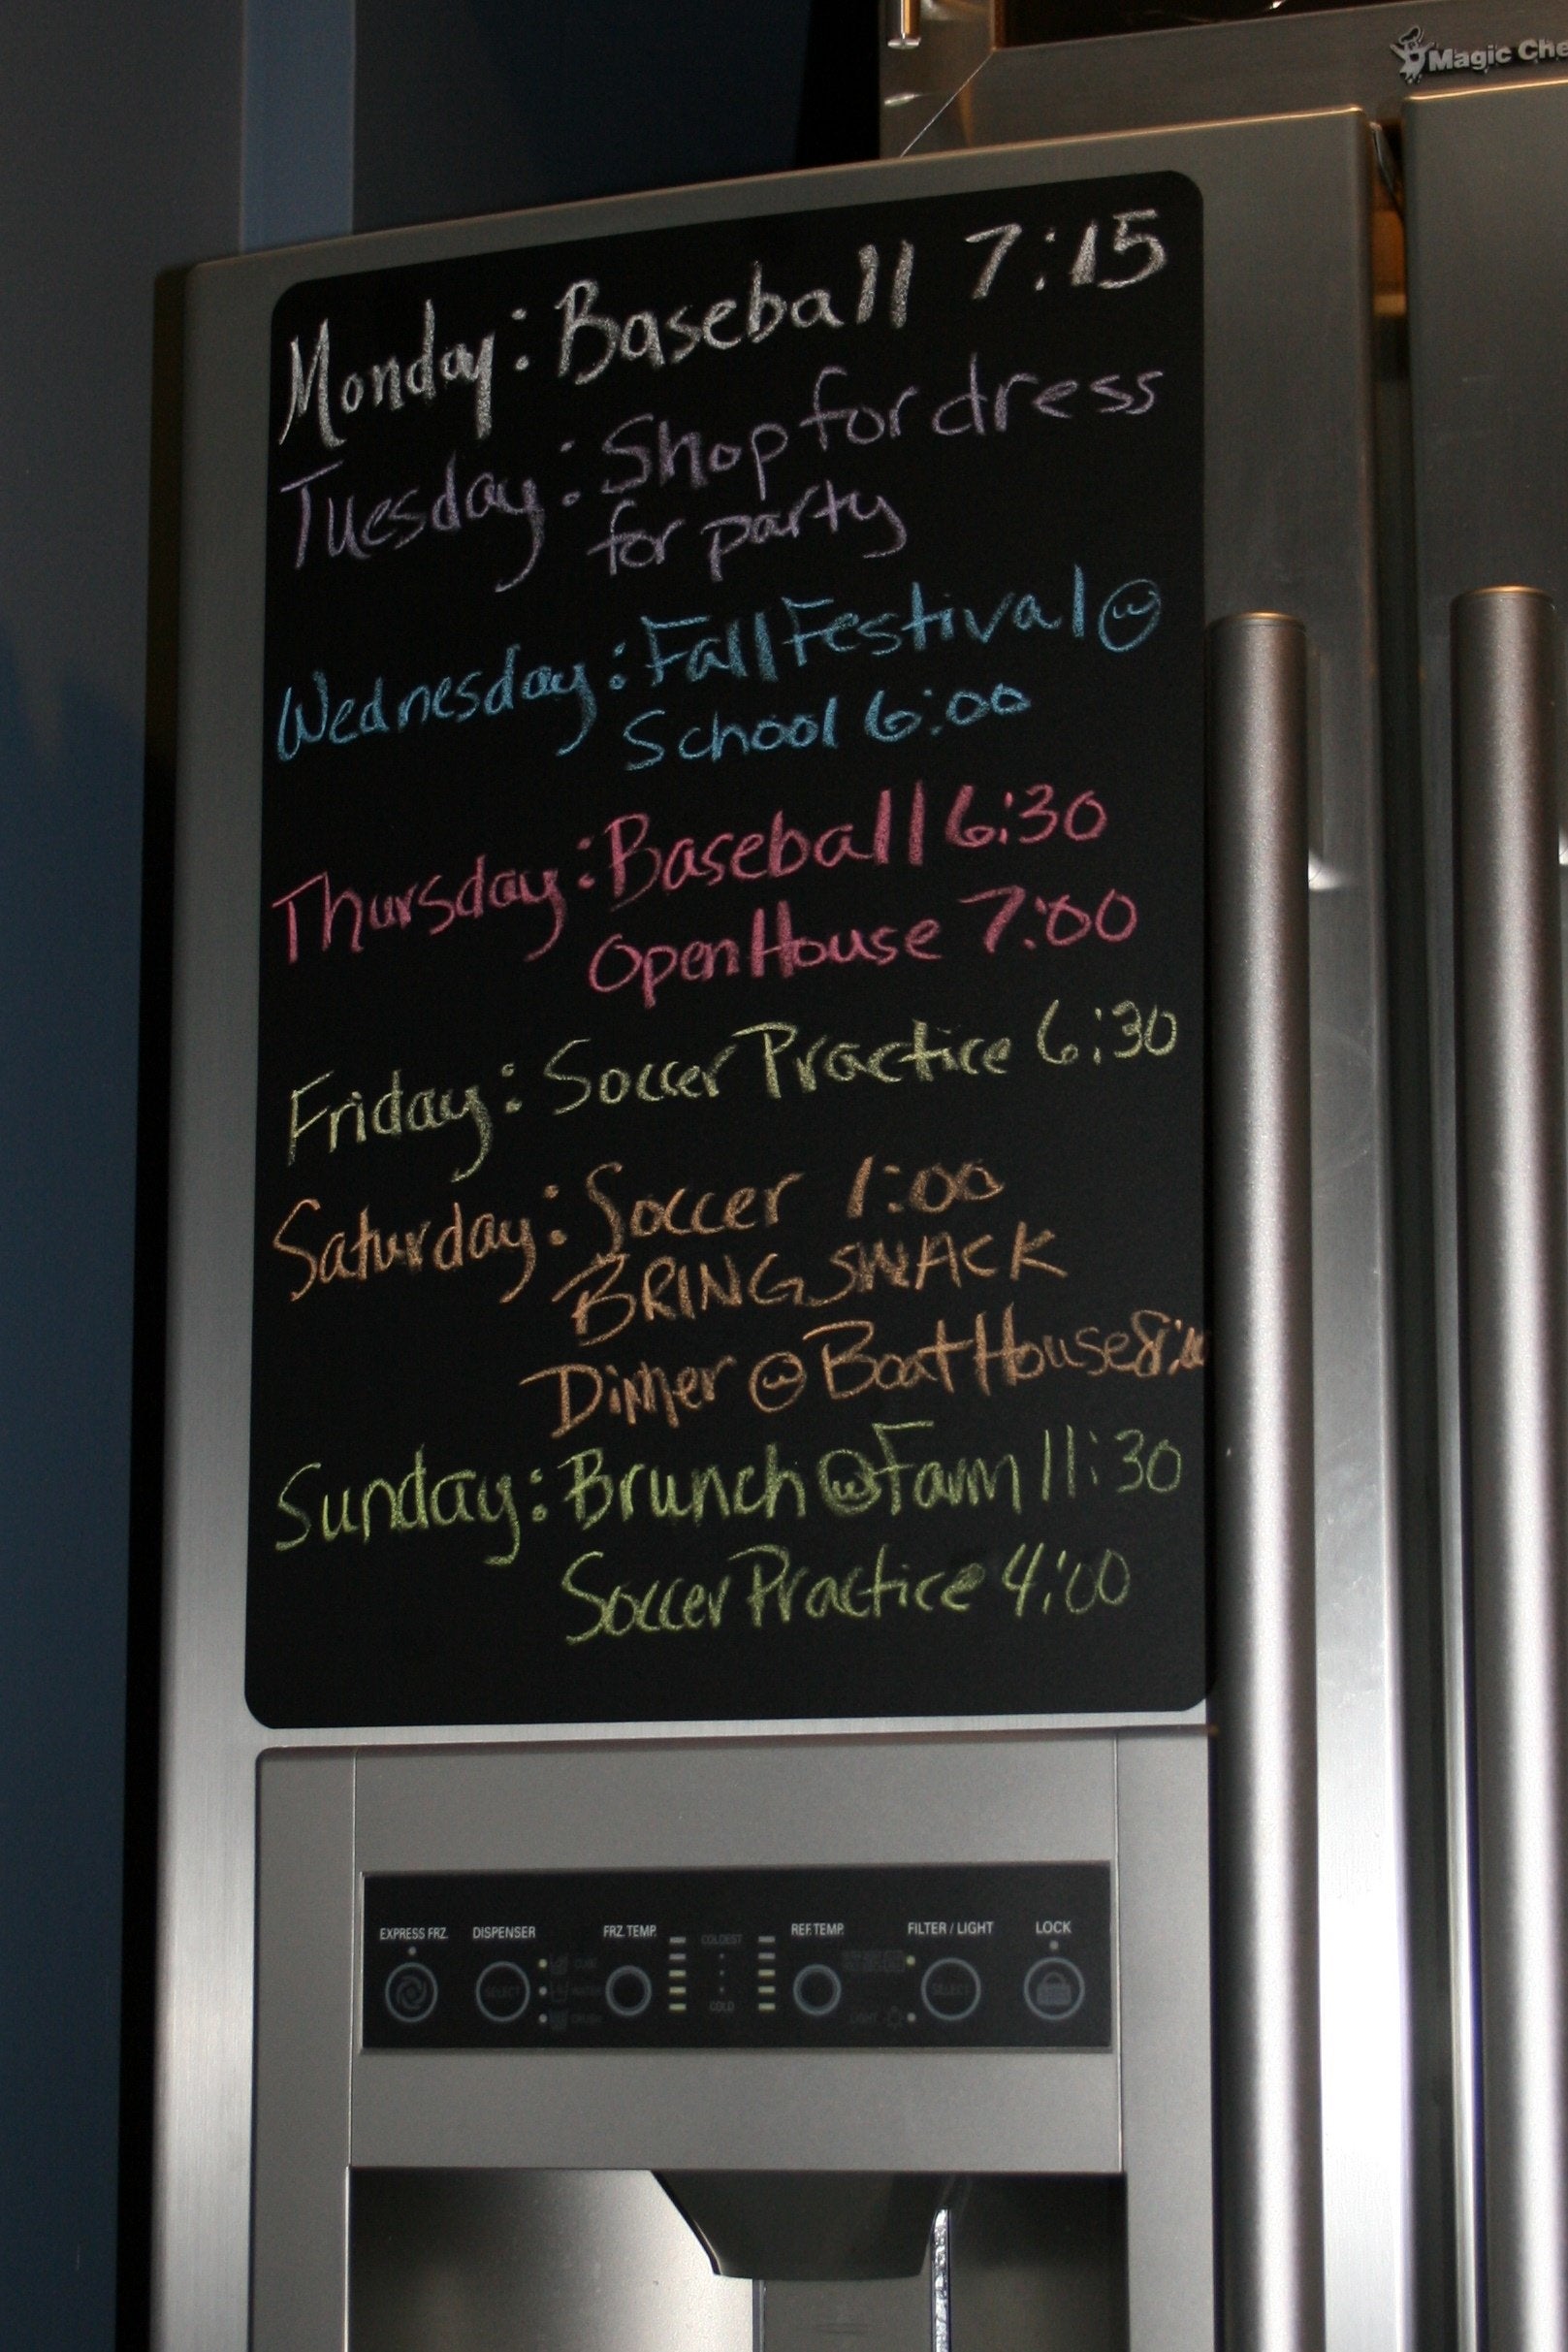 Magic Che
Monday: Baseball 7:15
Tuesday: Shop for dress
for party
Wednesday: Fall Festival @
School 6:00
Thursday: Baseball 6:30
Open House 7:00
Friday: Soccer Practice 6:30
Saturday: Soccer 1:00
BRING SNACK
Dinner @ Boat House
Sunday: Brunch @ Farm 11:30
Soccer Practice 4:00
EXPRESS FRZ. DISPENSER FRZ. TEMP. REF. TEMP. FILTER / LIGHT LOCK
COLDEST
CUBE
SELECT WATER SELECT
CRUSH COLD LIGHT